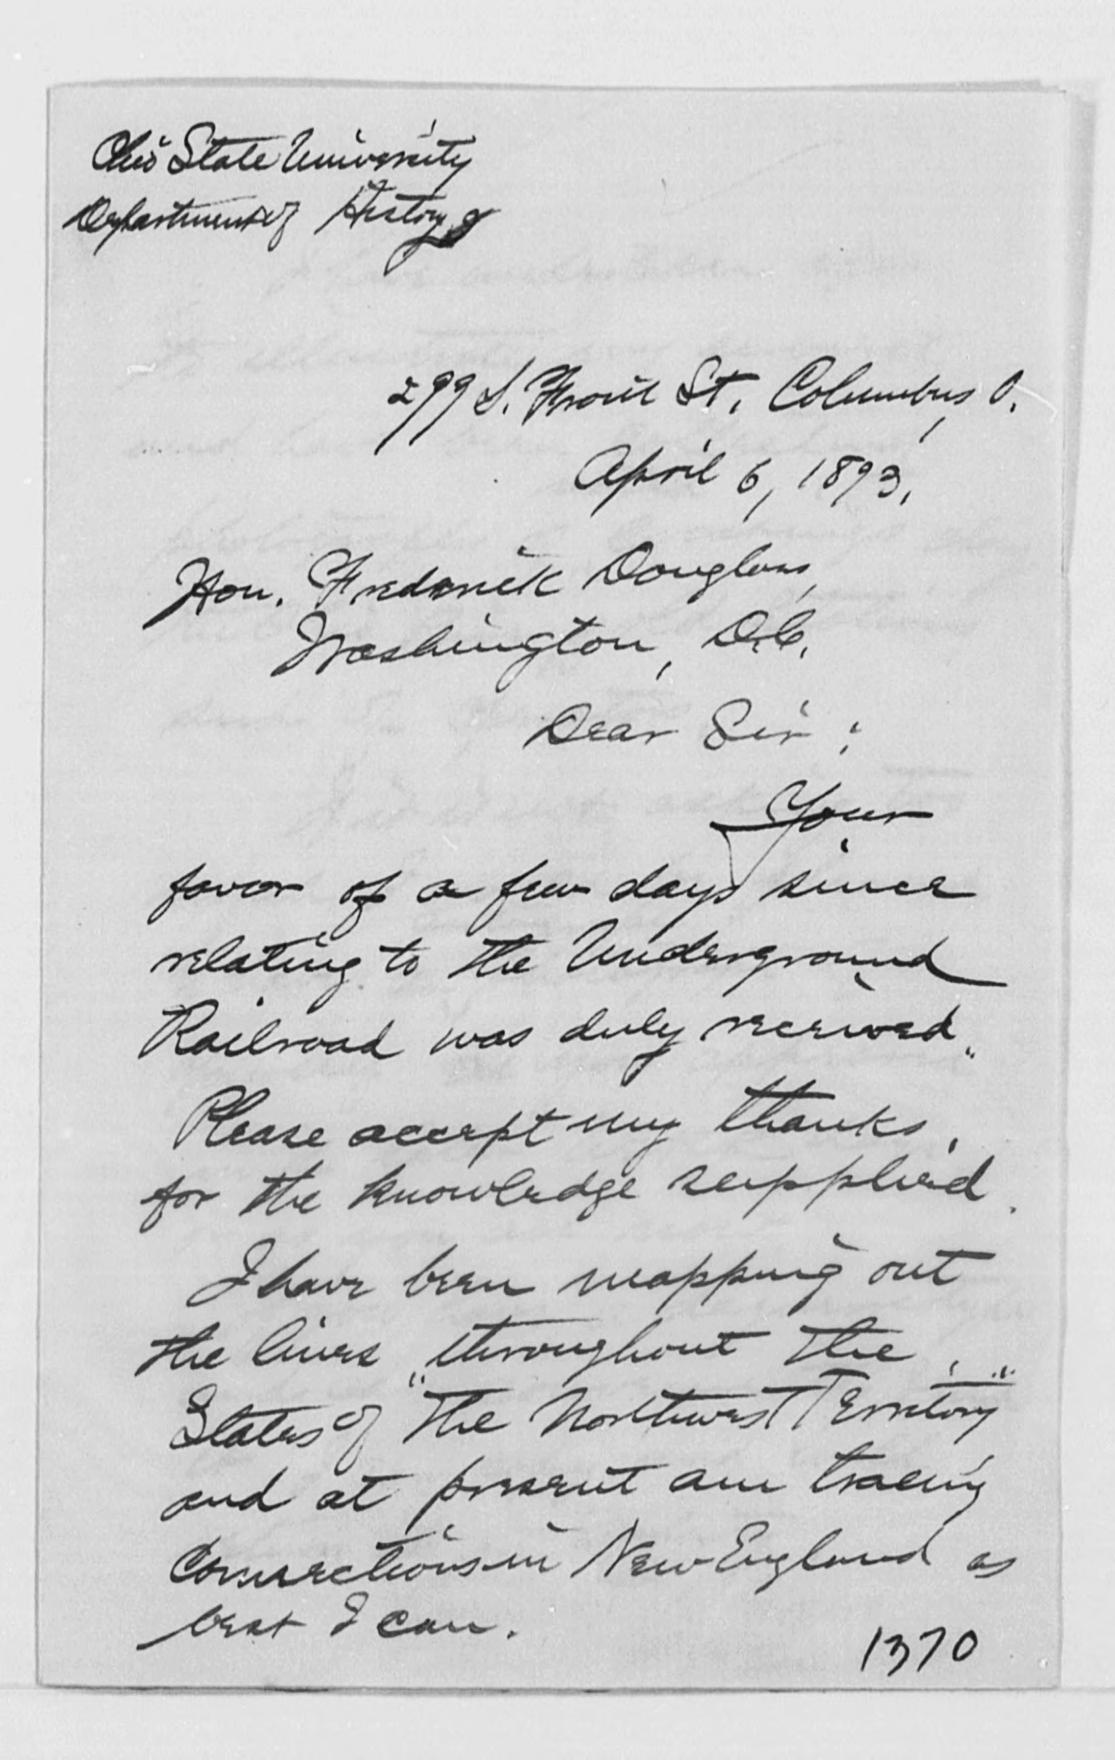 Ohio State University
Department of History
299 S. Front St., Columbus, O.
April 6, 1893.
Hon. Frederick Douglass,
Washington, D.C.
Dear Sir:
Your
favor of a few days since
relating to the Underground
Railroad was duly received.
Please accept my thanks
for the knowledge supplied.
I have been mapping out
the lines throughout the
States of "the Northwest Territory"
and at present am tracing
connections in New England as
best I can.
1370